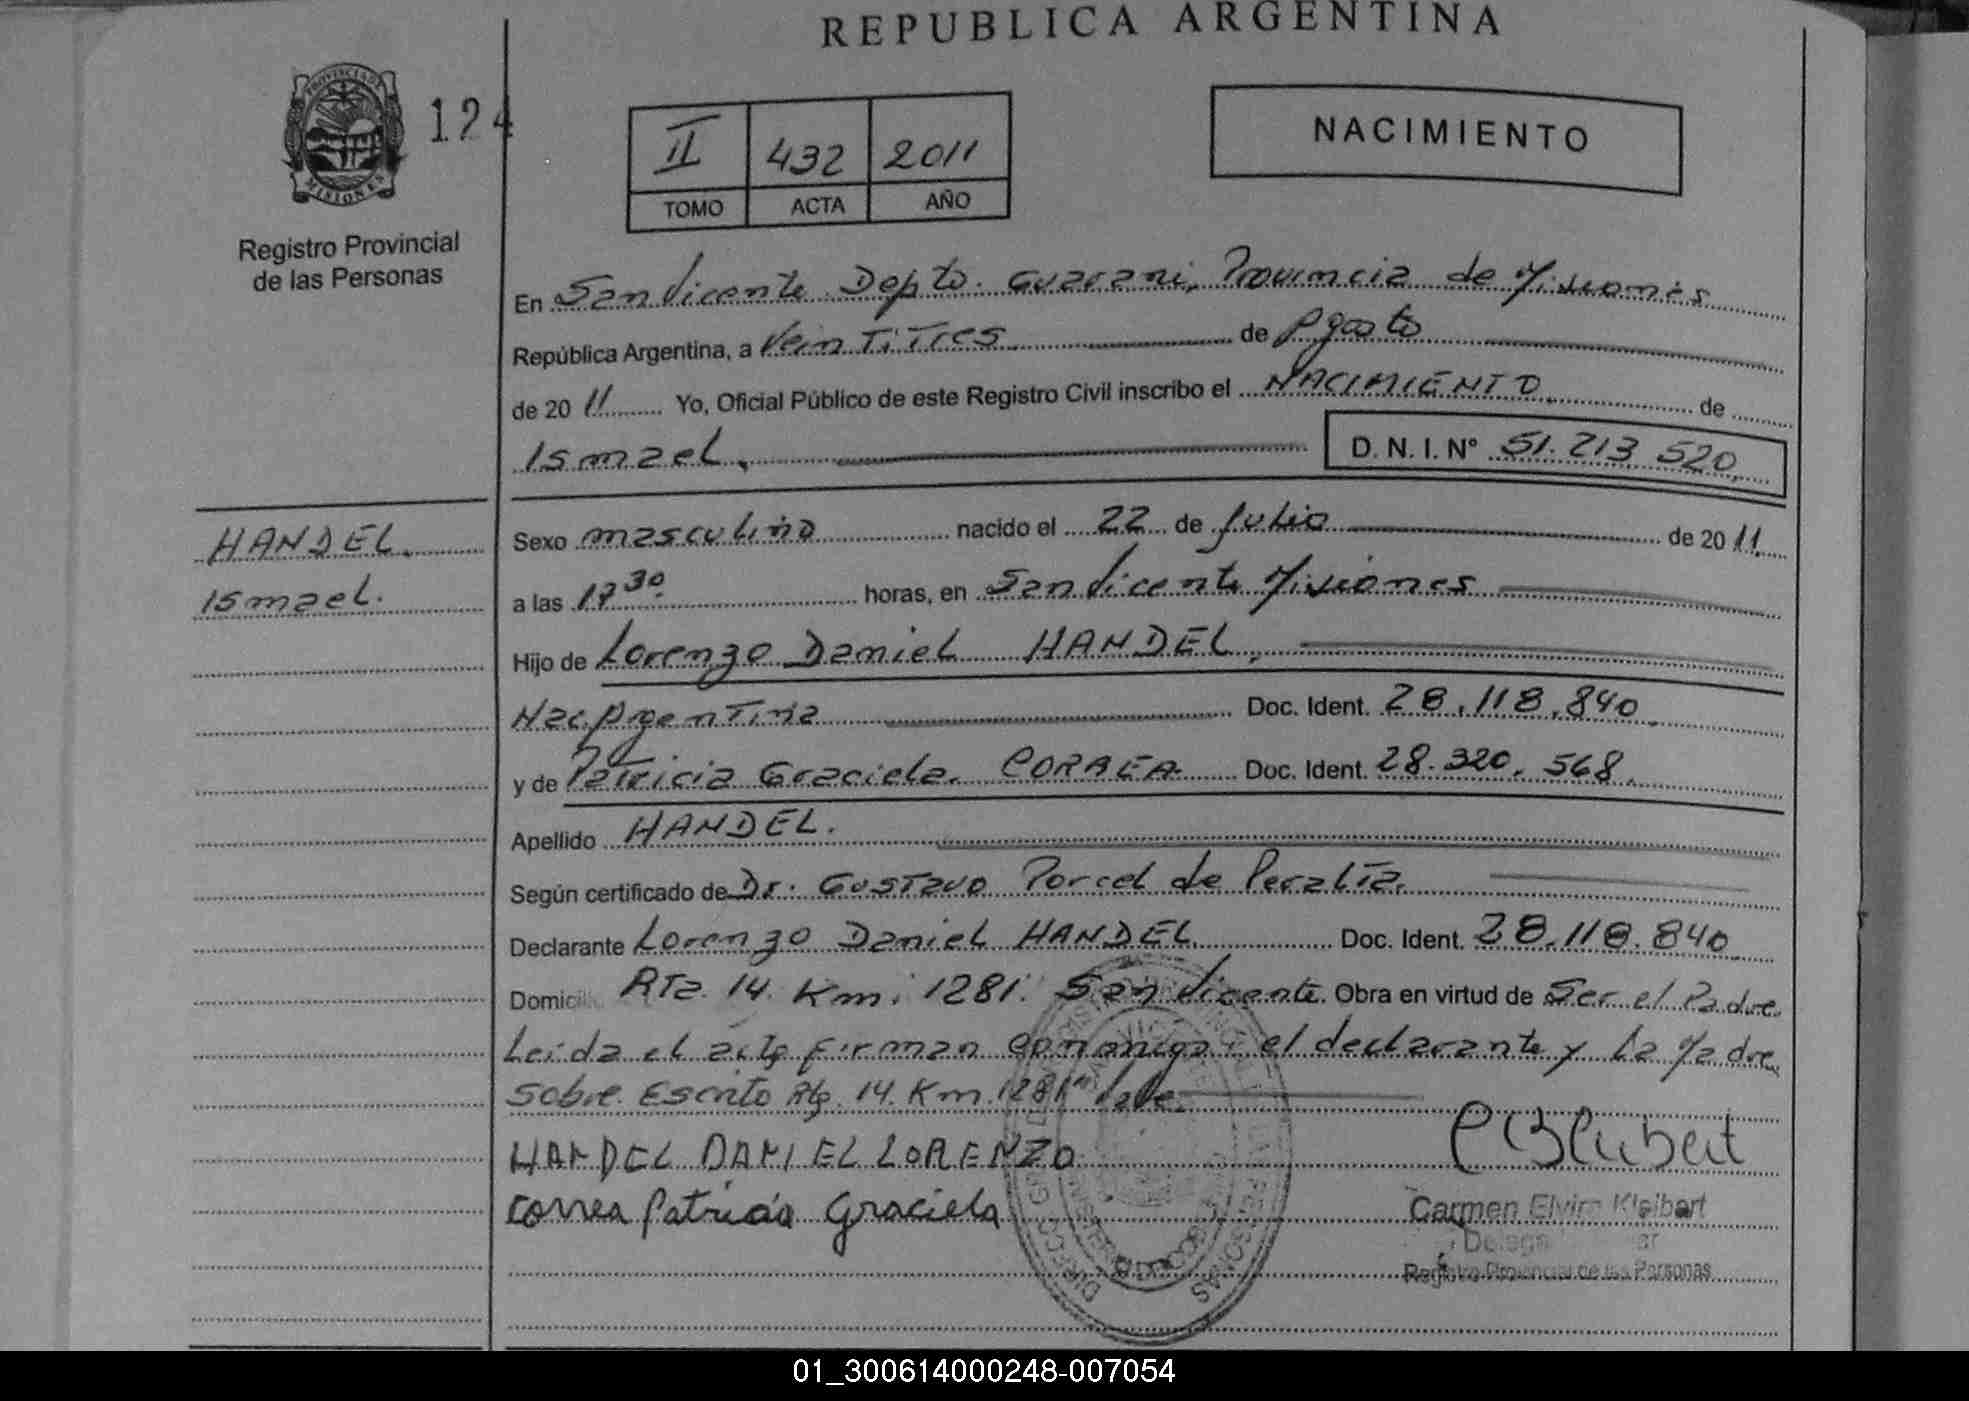 REPUBLICA ARGENTINA
PROVINCIA DE MISIONES
124
Registro Provincial
de las Personas
II 432 2011
TOMO ACTA AÑO
NACIMIENTO
En San Vicente Depto. Guarani, Provincia de Misiones
República Argentina, a Veintitres de Agosto
de 2011 Yo, Oficial Público de este Registro Civil inscribo el NACIMIENTO de
Ismael. D. N. I. N° 51.213.520
HANDEL.
Ismael.
Sexo masculino nacido el 22 de Julio de 2011
a las 17 30 horas, en San Vicente Misiones
Hijo de Lorenzo Daniel HANDEL.
Nac. Argentina Doc. Ident. 28.118.840.
y de Patricia Graciela CORREA Doc. Ident. 28.320.568.
Apellido HANDEL.
Según certificado de Dr. Gustavo Porcel de Peralta.
Declarante Lorenzo Daniel HANDEL Doc. Ident. 28.118.840
Domicilio Rta. 14 Km. 1281. San Vicente. Obra en virtud de Ser el Padre
Leida el acta firman conmigo el declarante y la Madre
Sobre Escrito Rta. 14 Km. 1281" Vale.
HANDEL DANIEL LORENZO
Correa Patricia Graciela
Carmen Elvira Kleibert
Registro Provincial de las Personas
01_300614000248-007054